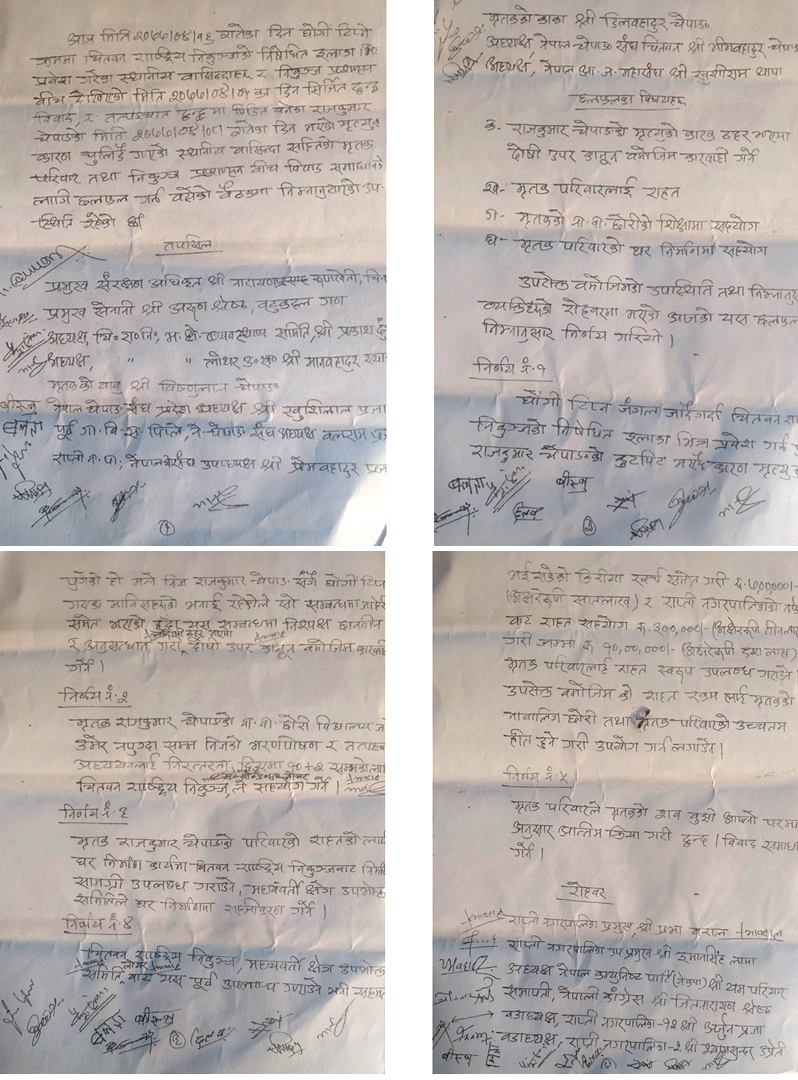 आज मिति २०७७।०४।१६ गतेका दिन घोंगी टिप्ने
क्रममा चितवन राष्ट्रिय निकुञ्जको निषेधित इलाका भि
प्रवेश गरेका स्थानीय वासिन्दाहरु र निकुञ्ज प्रशासन
वीच देखिएको मिति २०७७।०४।०१ का दिन सिर्जित द्वन्द्व
विवाद, र तत्पश्चात द्वन्द्वमा पिडित वनेका राजकुमार
चेपाङको मिति २०७७।०४।०८ गतेका दिन भएको मृत्युका
कारण चुलिदै गएको स्थानीय वासिन्दा सहितको मृतक
परिवार तथा निकुञ्ज प्रशासन वीच विवाद समाधानको
लागि छलफल गर्न वसेको वैठकमा निम्नानुसारको उप-
स्थिति रहेको छ।
तपसिल
प्रमुख संरक्षण अधिकृत श्री नारायणप्रसाद रुपाखेती, चित
प्रमुख सेनानी श्री अरुण श्रेष्ठ, वटुकदल गण
अध्यक्ष, चि.रा.नि, म.क्षे. व्यवस्थापन समिति, श्री प्रकाश
अध्यक्ष, " " लोथर उ.स. श्री मानवहादुर
मृतकको वावु श्री विष्णुलाल चेपाङ
नेपाल चेपाङ संघ प्रदेश अध्यक्ष श्री खुशिलाल प्रजा
पूर्व गा.वि.स. पिप्ले, ने.चेपाङ संघ अध्यक्ष वलराम प्र
राप्ती न.पा, उपाध्यक्ष श्री प्रेमवहादुर प्रज
वीरुजु
(१)
मृतकको काका श्री डिलवहादुर चेपाङ
अध्यक्ष नेपाल चेपाङ संघ चितवन श्री गोविन्दवहादुर चेपाङ
अध्यक्ष, नेपाल आ.ज. महासंघ श्री खुसीराम थापा
छलफलका विषयहरु
क- राजकुमार चेपाङको मृत्युको कारक ठहर भएमा
दोषी उपर कानून वमोजिम कारवाही गर्ने
ख- मृतक परिवारलाई राहत
ग- मृतकको ना.वा. छोरीको शिक्षामा सहयोग
घ- मृतक परिवारको घर निर्माणमा सहयोग
उपरोक्त वमोजिमको उपस्थिति तथा निम्नानुस
व्यक्तिहरुको रोहवरमा भएको आजको यस छलफल
निम्नानुसार निर्णय गरियो।
निर्णय नं. १
घोंगी टिप्न जंगल जाँदागर्दा चितवन रा
निकुञ्जको निषेधित इलाका भित्र प्रवेश गर्न
राजकुमार चेपाङको कुटपिट भएकै कारण मृत्यु
वीरुजु
(२)
पुगेको हो भन्ने निज राजकुमार चेपाङ संगै घोंगी टिप्न
गएका मानिसहरुको भनाई रहेकोले सो सम्बन्धमा
समेत भएको हुँदा यस सम्बन्धमा निश्पक्ष छानवीन
र अनुसन्धान गरी, दोषी उपर कानून वमोजिम कारवाही
गर्ने।
निर्णय नं. २
मृतक राजकुमार चेपाङको ना.वा. छोरी विद्यालय ज
उमेर नपुग्दा सम्म निजको भरणपोषण र तत्पश्चात
अध्ययनलाई निरन्तरता, निजमा १०+२ सम्मको ला
चितवन राष्ट्रिय निकुञ्ज, ले सहयोग गर्ने।
निर्णय नं. ३
मृतक राजकुमार चेपाङको परिवारको राहतको लागि
घर निर्माण कार्यमा चितवन राष्ट्रिय निकुञ्जवाट निर्मा
सामग्री उपलब्ध गराउने, मध्यवर्ती क्षेत्र उपभोक्त
समितिले घर निर्माणमा सहजीकरण गर्ने।
निर्णय नं. ४
चितवन राष्ट्रिय निकुञ्ज, मध्यवर्ती क्षेत्र उपभोक्
समिति, वाट यस पूर्व उपलब्ध गराउने भनी सहम
वीरुजु
(३)
भई सकेको किरिया खर्च समेत गरी रु. ७,०००००।-
(अक्षरेरुपी सातलाख) र राप्ती नगरपालिकाको तर्फ
वाट राहत सहयोग रु. ३००,०००।- (अक्षरेरुपी तीनलाख
गरी जम्मा रु १०,००,०००।- (अक्षरेरुपी दश लाख)
मृतक परिवारलाई राहत स्वरुप उपलब्ध गराउने।
उपरोक्त वमोजिम को राहत रकम लाई मृतकको
नावालिग छोरी तथा मृतक परिवारको उच्चतम
हीत हुने गरी उपयोग गर्न लगाउने।
निर्णय नं. ५
मृतक परिवारले मृतकको शव वुझी आफ्नो परम्प
अनुसार अन्तिम क्रिया गरी हुन्छ। विवाद समाधा
गर्ने।
रोहवर
राप्ती नगरपालिका प्रमुख, श्री प्रभा वराल
राप्ती नगरपालिका उप प्रमुख श्री इमानसिंह लामा
अध्यक्ष नेपाल कम्युनिष्ट पार्टि (नेकपा) श्री यम परियार
सभापती, नेपाली काँग्रेस श्री जितनारायण श्रेष्ठ
वडाध्यक्ष, राप्ती नगरपालिका-१२ श्री अर्जुन प्रजा
वडाध्यक्ष, राप्ती नगरपालिका-२ श्री श्यामसुन्दर उप्रेती
वीरुजु